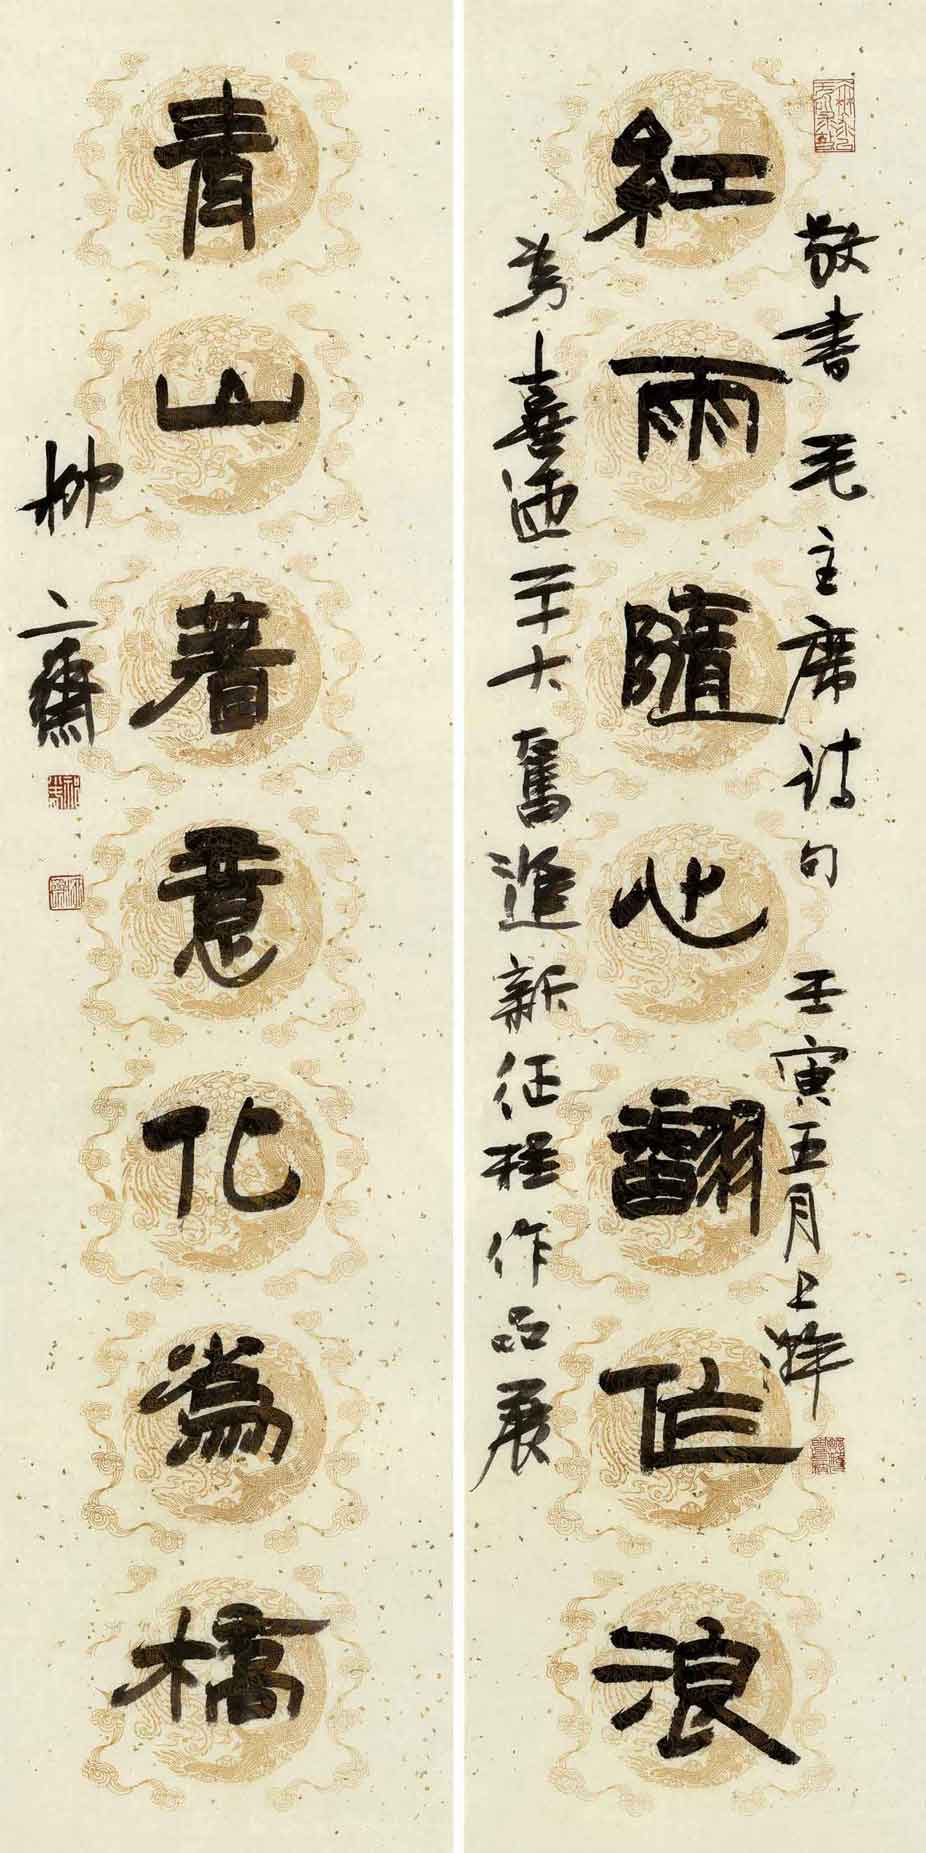 敬書毛主席诗句 壬寅五月上澣
紅雨隨心翻作浪
為喜迎二十大奮進新征程作品展
青山著意化為橋
柳齋